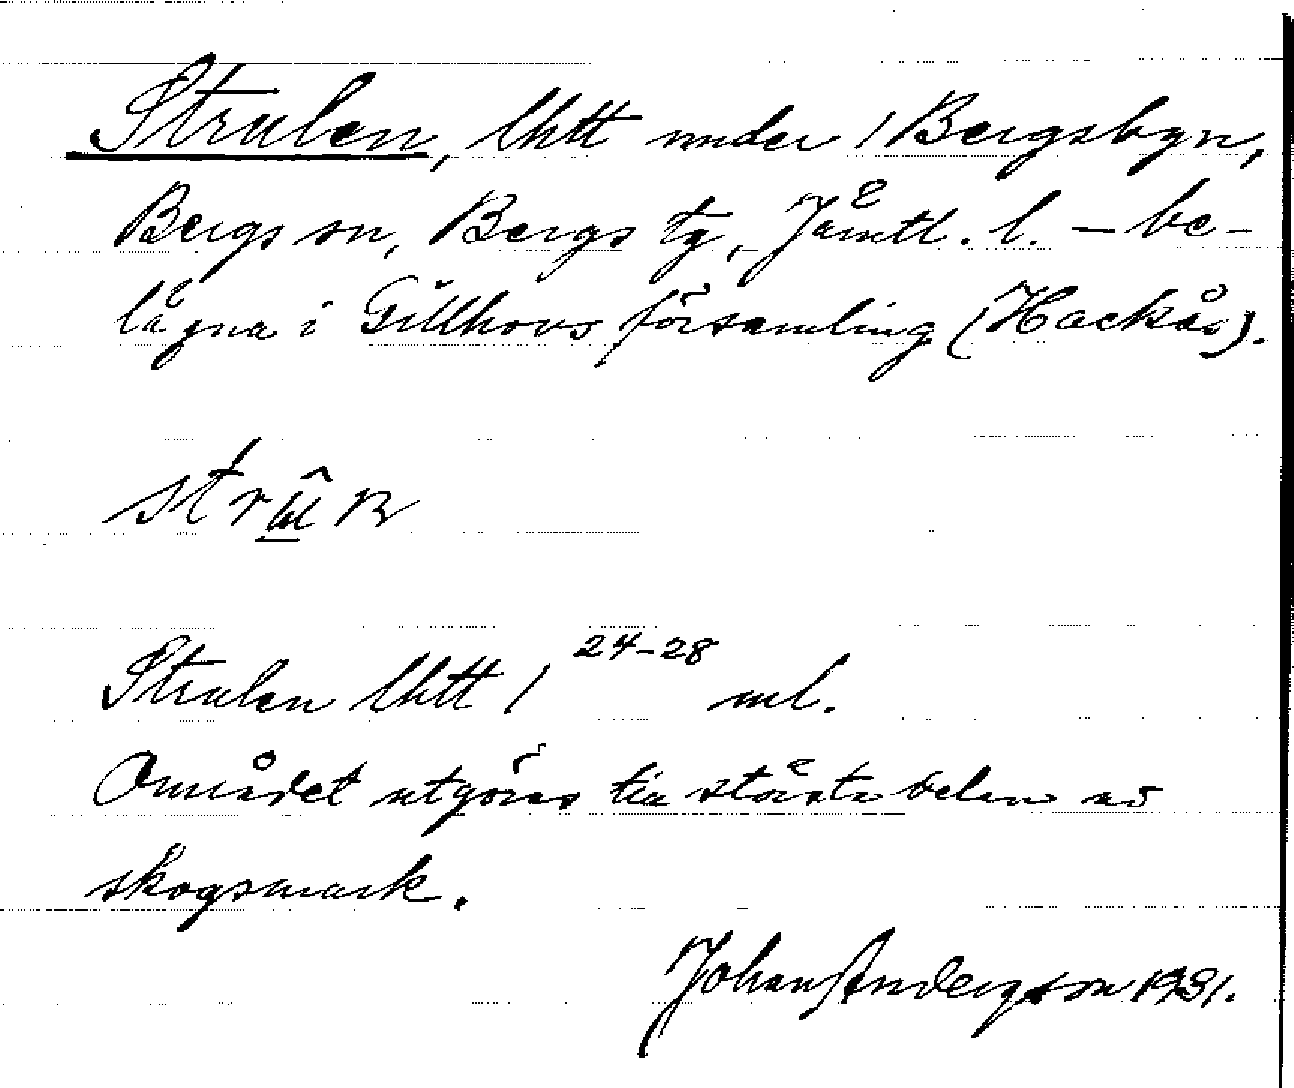 Strulen, lhtt under 1 Bergsbyn,
Bergs sn, Bergs tg, Jämtl. l. – be-
lägna i Gillhovs församling (Hackås).
Strulen lhtt 1 24-28 ml.
Området utgöres till största delen av
skogsmark.
Johan Andersson 1931.